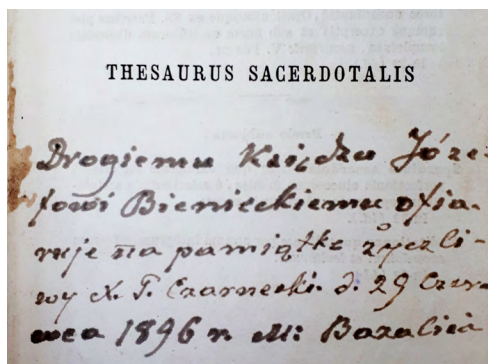 THESAURUS SACERDOTALIS
Drogiemu Księdzu Józe-
fowi Bienieckiemu ofia-
ruje na pamiątke życzli-
wy X. T. Czarnecki. d. 29 Czer-
wca 1896 r. M: Bazalia